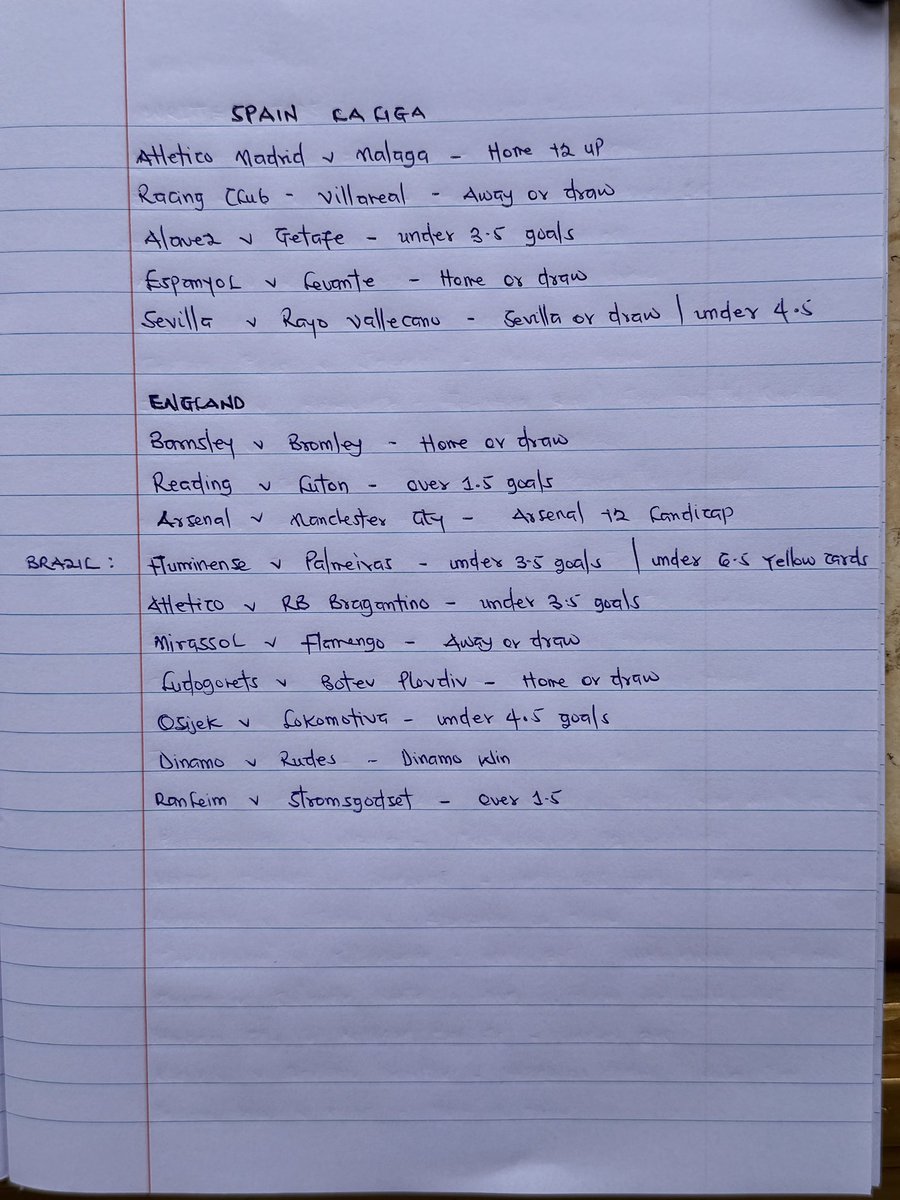 SPAIN LA LIGA
Atletico Madrid v Malaga - Home +2 UP
Racing Club - Villareal - Away or draw
Alavez v Getafe - under 3.5 goals
Espanyol v Levante - Home or draw
Sevilla v Rayo Vallecano - Sevilla or draw | under 4.5
ENGLAND
Barnsley v Bromley - Home or draw
Reading v Luton - over 1.5 goals
Arsenal v Manchester City - Arsenal +2 Handicap
BRAZIL: Fluminense v Palmeiras - under 3.5 goals | under 6.5 Yellow cards
Atletico v RB Bragantino - under 3.5 goals
Mirassol v Flamengo - Away or draw
Ludogorets v Botev Plovdiv - Home or draw
Osijek v Lokomotiva - under 4.5 goals
Dinamo v Rudes - Dinamo Win
Ranheim v Stromsgodset - over 1.5